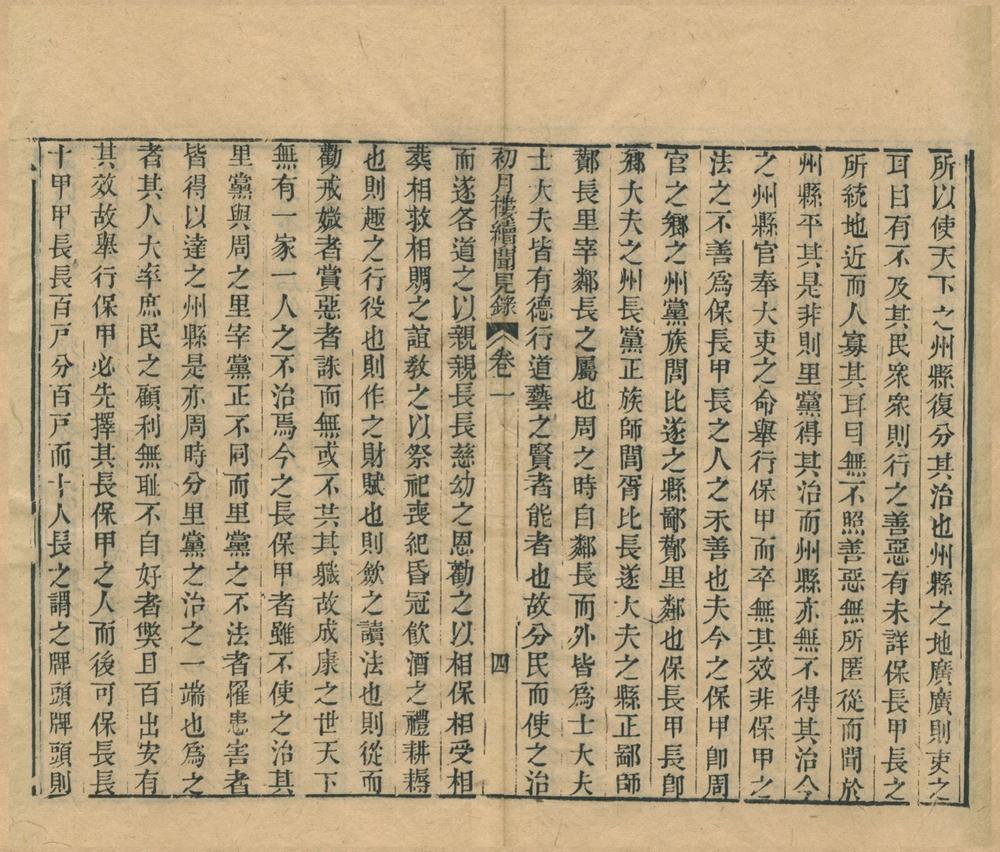 所以使天下之州縣復分其治也州縣之地廣廣則吏之
耳目有不及其民衆衆則行之善惡有未詳保長甲長之
所統地近而人寡其耳目無不照善惡無所匿從而聞於
州縣平其是非則里黨得其治而州縣亦無不得其治今
之州縣官奉大吏之命舉行保甲而卒無其效非保甲之
法之不善爲保長甲長之人之未善也夫今之保甲卽周
官之鄉之州黨族閭比遂之縣鄙酇里鄰也保長甲長卽
鄉大夫之州長黨正族師閭胥比長遂大夫之縣正鄙師
酇長里宰鄰長之屬也周之時自鄰長而外皆爲士大夫
士大夫皆有德行道藝之賢者能者也故分民而使之治
初月樓續聞見錄 卷一 四
而遂各道之以親親長長慈幼之恩勸之以相保相受相
葬相救相賙之誼敎之以祭祀喪紀昏冠飮酒之禮耕耨
也則趣之行役也則作之財賦也則斂之讀法也則從而
勸戒媺者賞惡者誅而無或不共其職故成康之世天下
無有一家一人之不治焉今之長保甲者雖不使之治其
里黨與周之里宰黨正不同而里黨之不法者罹患害者
皆得以達之州縣是亦周時分里黨之治之一端也爲之
者其人大率庶民之顧利無耻不自好者獘且百出安有
其效故舉行保甲必先擇其長保甲之人而後可保長長
十甲甲長長百戸分百戸而十人長之謂之牌頭牌頭則